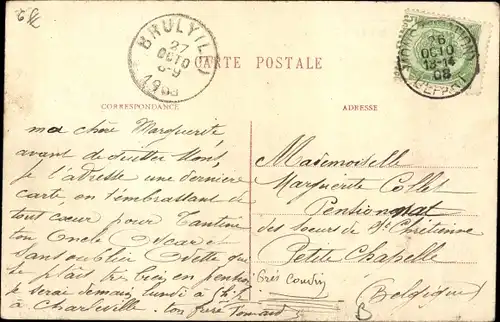 BRULY
27
OCTO
8-9
1908
26
OCTO
13-14
08
CARTE POSTALE
CORRESPONDANCE
ADRESSE
ma chère Marguerite
avant de quitter Mons,
je t'adresse une dernière
carte, en t'embrassant de
tout cœur pour Tantine
ton Oncle Oscar et
sans oublier Odette qui
se plaît très bien en pension
je serai demain lundi à 
à Charleville. ton père
Mademoiselle
Marguerite Collet
Pensionnat
des Soeurs de Ste Chrétienne
Petite Chapelle
(Belgique)
B